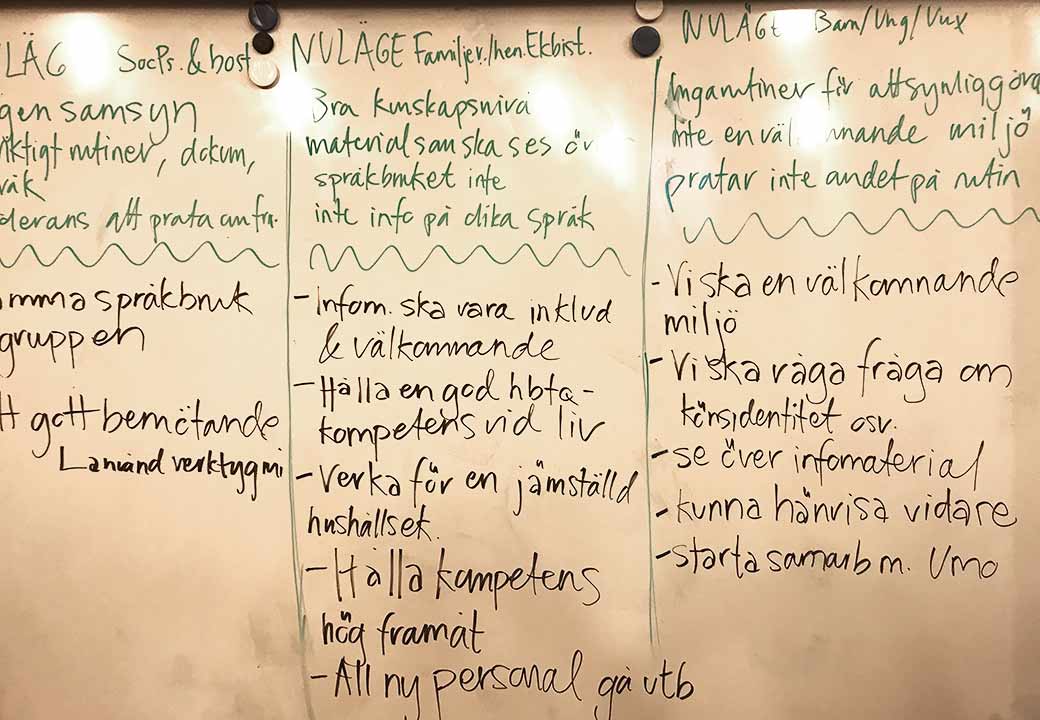 LÄG SocPs. & bost
gen samsyn
iktigt rutiner, dokum,
råk
olerans att prata om fra.
mma språkbruk
gruppen
tt gott bemötande
använd verktyg mi
NULÄGE Familjer./hen. Ekbist.
Bra kunskapsnivå
material som ska ses öv
språkbruket inte
inte info på olika språk
- Infom. ska vara inklud
& välkommande
- Hålla en god hbtq-
kompetens vid liv
- Verka för en jämställd
hushållsek.
- Hålla kompetens
hög framåt
- All ny personal gå utb
NULÄGE Barn/Ung/Vux
Inga rutiner för att synliggöra
Inte en väl mnande miljö
pratar inte om det på rutin
- Vi ska en välkomnande
miljö
- Vi ska våga fråga om
könsidentitet osv.
- se över infomaterial
- kunna hänvisa vidare
- starta samarb m. Umo